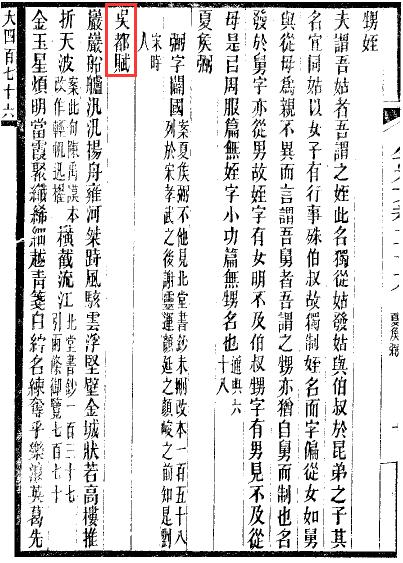 甥姪
夫謂吾姑者吾謂之姪此名獨從姑發姑與伯叔於昆弟之子其
名宜同姑以女子有行事殊伯叔故獨制姪名而字偏從女如舅
與從母爲親不異而言謂吾舅者吾謂之甥亦猶自舅而制也名
發於舅字亦從男故姪字有女明不及伯叔甥字有男見不及從
母是以周服篇無姪字小功篇無甥名也通典六十八
夏矦弼
弼字闕國案夏矦弼不他見北堂書鈔未刪改本一百五十八列於宋孝武之後謝靈運顏延之顏峻之前知是劉宋時人
吳都賦
巖巖船艫汎汎揚舟雍河桀時風駭雲浮堅壁金城狀若高樓推
折天波案此句陳禹謨本改作輕帆迅櫂橫截流江北堂書鈔一百三十七引兩條御覽七百七十
金玉星煩明當霞聚纖絺細越青箋白紵名練奪乎樂浪英葛先
大四百七十六